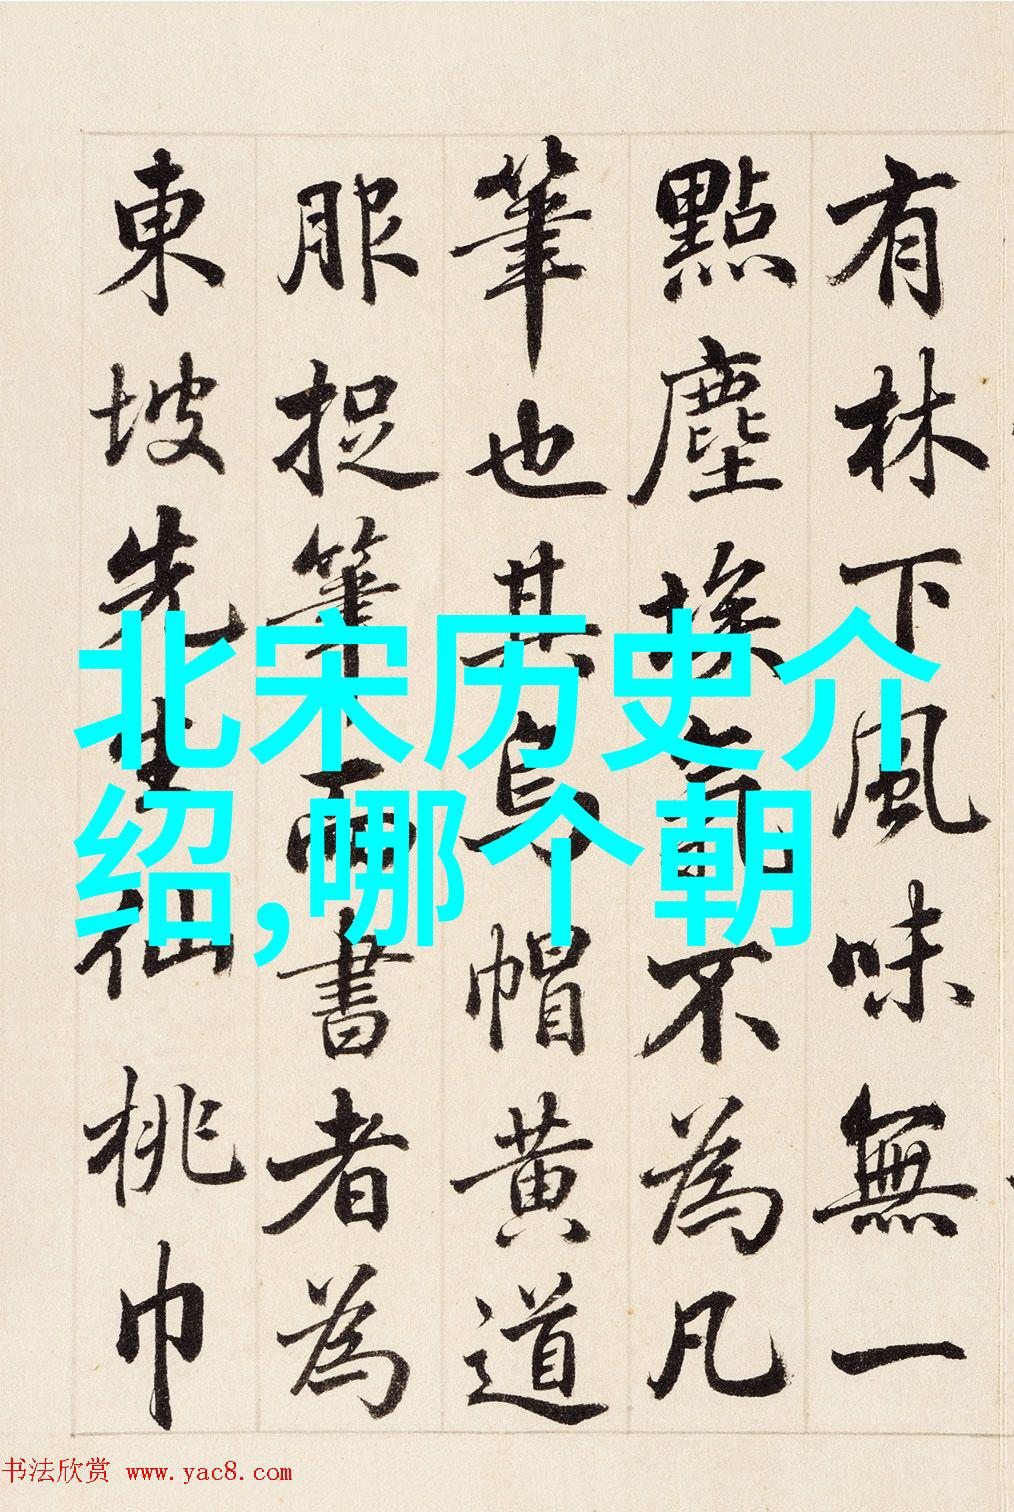 有林下風味無一
點塵埃氣不為凡
筆也其烏帽黄道
服捉筆而書者為
東坡先生仙桃巾
北宋历史介
绍,哪个朝
书法欣赏 www.yac8.com